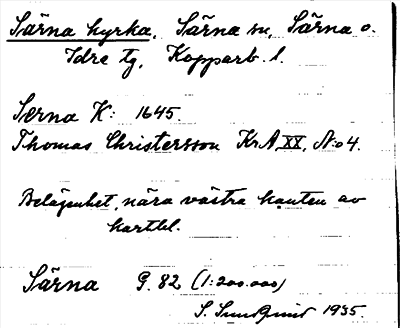 Särna kyrka, Särna sn, Särna o.
Idre tg, Kopparb. l.
Serna K: 1645.
Thomas Christersson Kr.A. XX, N:o 4.
Belägenhet, nära västra kanten av
kartbl.
Särna G. 82 (1:200.000)
S. Sundqvist 1935.